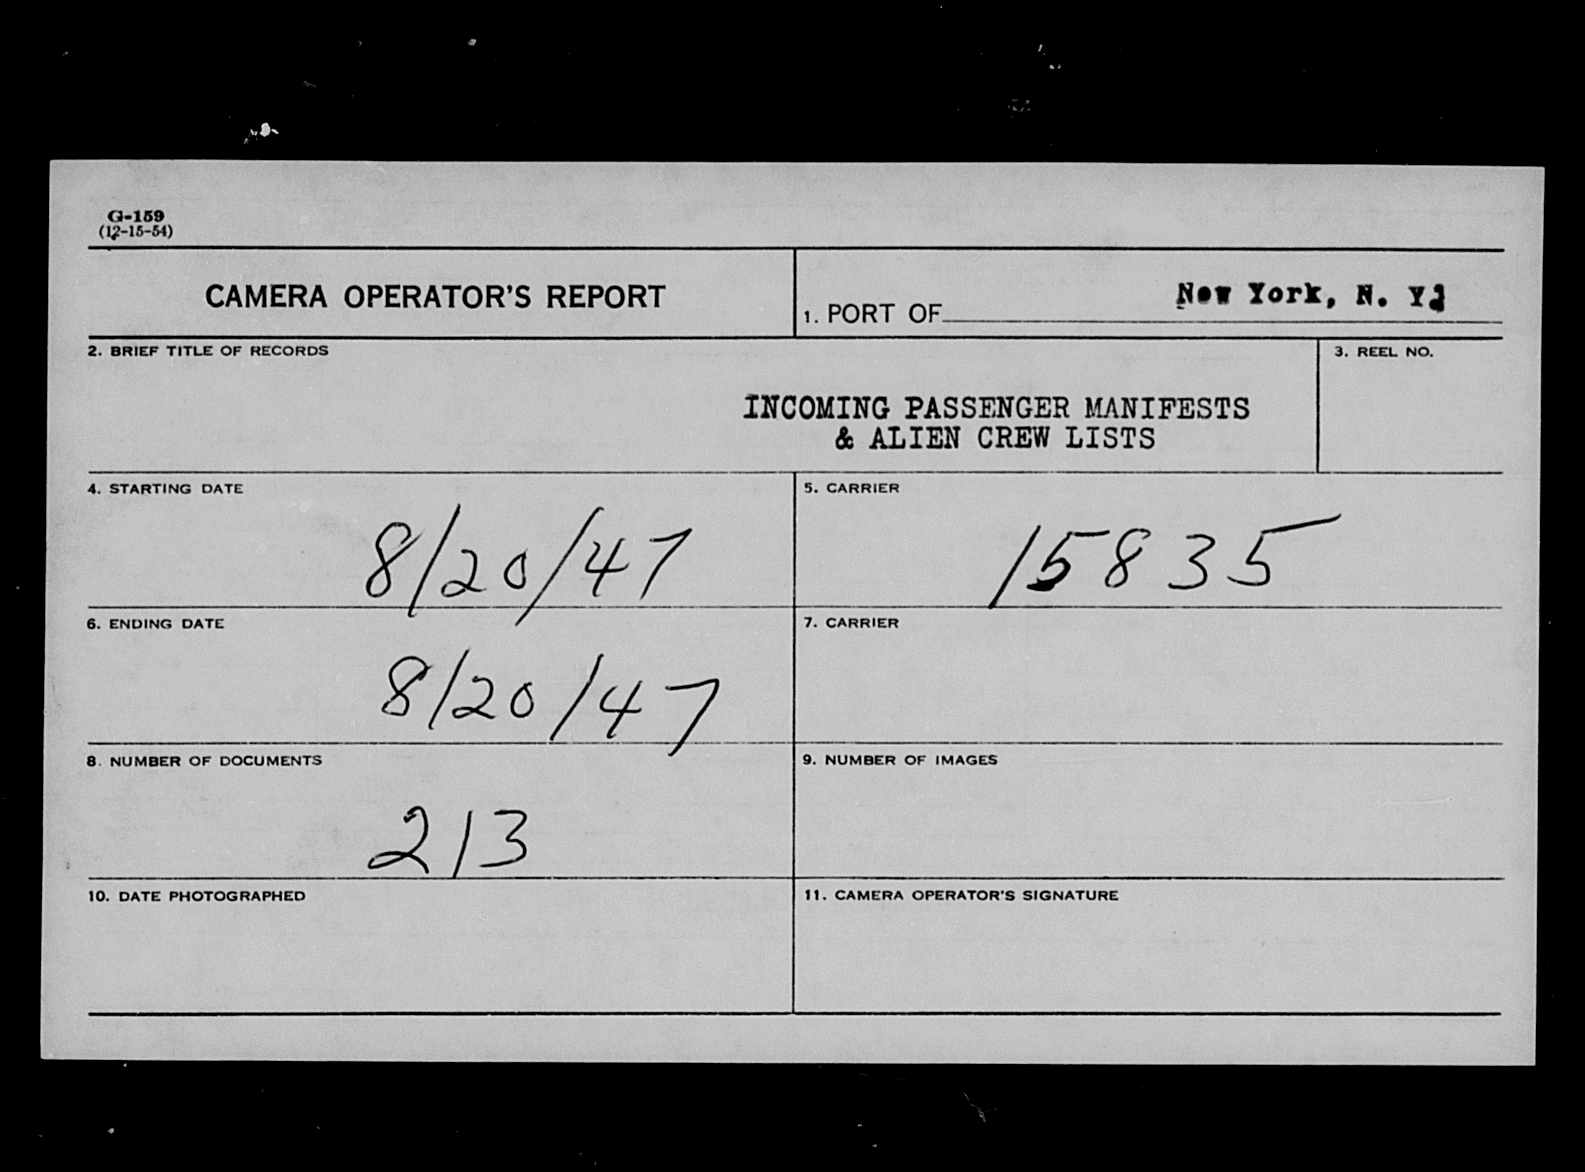 G-159
(12-15-54)
CAMERA OPERATOR'S REPORT
1. PORT OF New York, N. Y.
2. BRIEF TITLE OF RECORDS
3. REEL NO.
INCOMING PASSENGER MANIFESTS
& ALIEN CREW LISTS
4. STARTING DATE
8/20/47
5. CARRIER
15835
6. ENDING DATE
8/20/47
7. CARRIER
8. NUMBER OF DOCUMENTS
213
9. NUMBER OF IMAGES
10. DATE PHOTOGRAPHED
11. CAMERA OPERATOR'S SIGNATURE